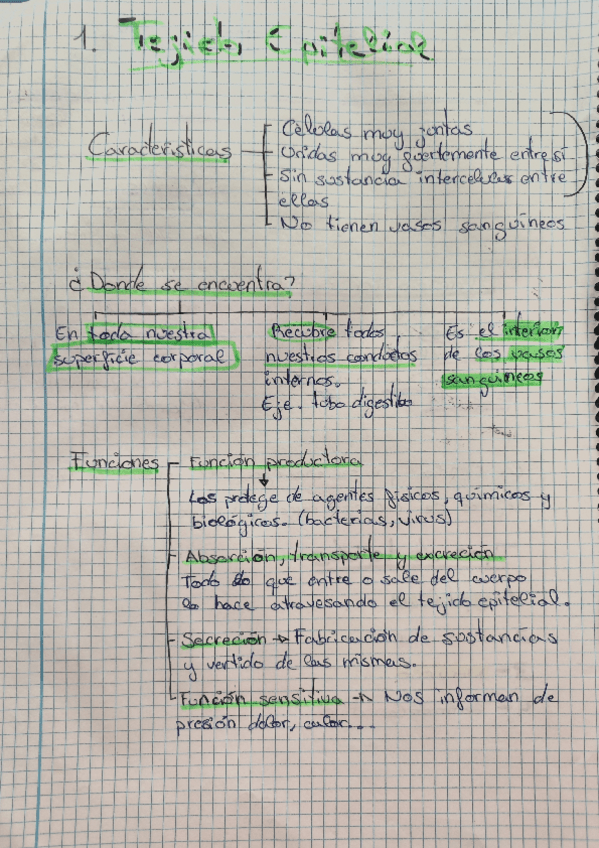 1. Tejido Epitelial
Características
Células muy juntas
Unidas muy fuertemente entre sí
Sin sustancia intercelular entre
ellas
No tienen vasos sanguíneos
¿Donde se encuentra?
En toda nuestra
superficie corporal
Recubre todos
nuestros conductos
internos.
Eje. tubo digestivo
Es el interior
de los vasos
sanguíneos
Funciones
Función productora
Los protege de agentes físicos, químicos y
biológicos. (bacterias, virus)
Absorción, transporte y excreción
Todo lo que entre o sale del cuerpo
lo hace atravesando el tejido epitelial.
Secreción → Fabricación de sustancias
y vertido de las mismas.
Función sensitiva → Nos informan de
presión dolor, calor...